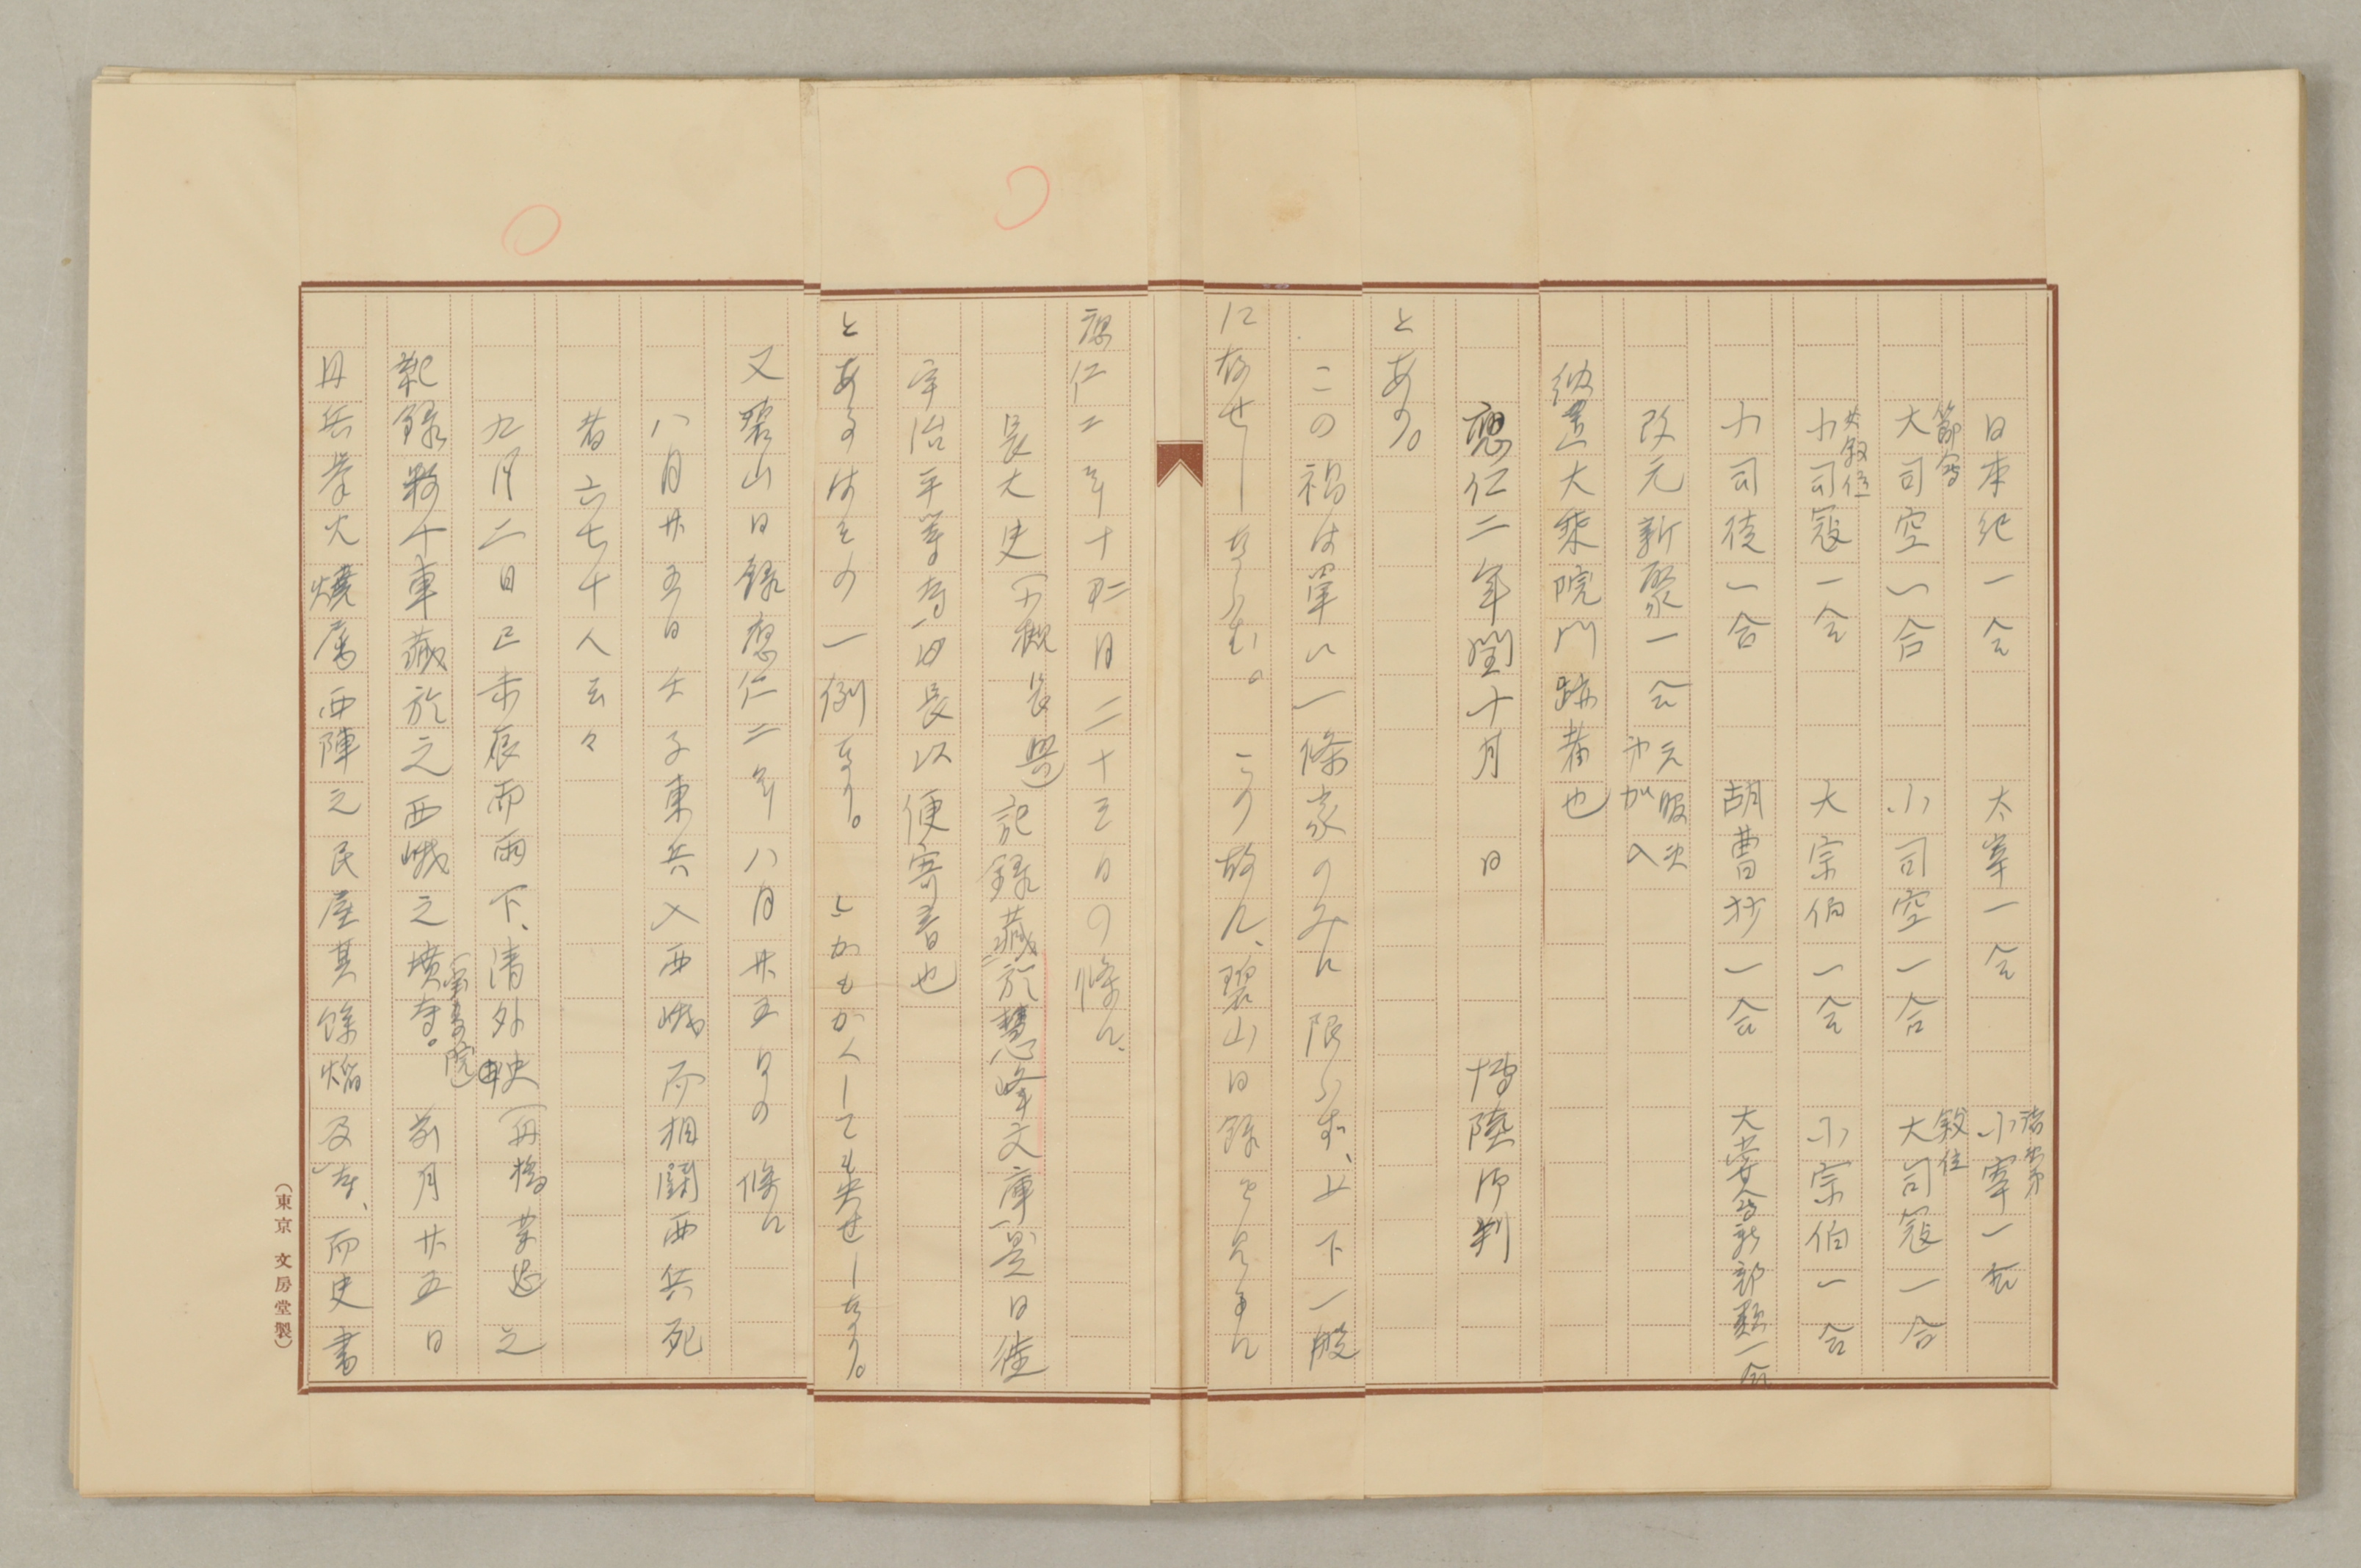 日本紀一合 太宰一合 小宰一合
諸第
大司空一合 小司空一合 大司寇一合
節会 敍位
小司寇一合 大宗伯一合 小宗伯一合
女敍位
小司徒一合 胡曹抄一合 大嘗会部類一合
改元新聚一合 元服次加入
納置大乗院門跡者也
應仁二年閏十月 日 博陸御判
とあり。
この禍は単に一條家のみに限らず、上下一般
になせしならむ。この故に、碧山日録
應仁二年十月二十三日の條に、
長大史(小槻長興)記録藏於慧峰文庫是日徙
宇治平等寺、以長以便寄書也
とあるはその一例なり。しかもかくしても失せしなり。
又碧山日録應仁二年八月廿五日の條に
八月廿五日 壬子東兵入西峨而相鬪西兵死
者六七十人云々
九月二日己未辰而雨下、清外史(舟橋業忠)之
記録数十車藏於之西峨之墳寺。前月廿五日
(宝寿院)
丹兵挙火燒属西陣之民屋其餘焔及寺、而史書
(東京 文房堂製)